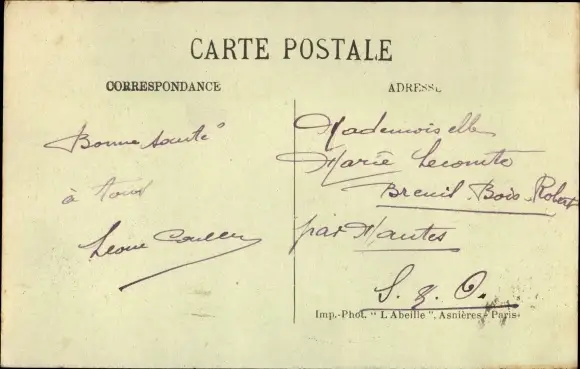 CARTE POSTALE
CORRESPONDANCE
ADRESSE
Bonne santé
à tous
Mademoiselle
Marie Lecomte
Breuil-Bois-Robert
par Mantes
S. & O.
Imp.-Phot. "L'Abeille", Asnières-Paris